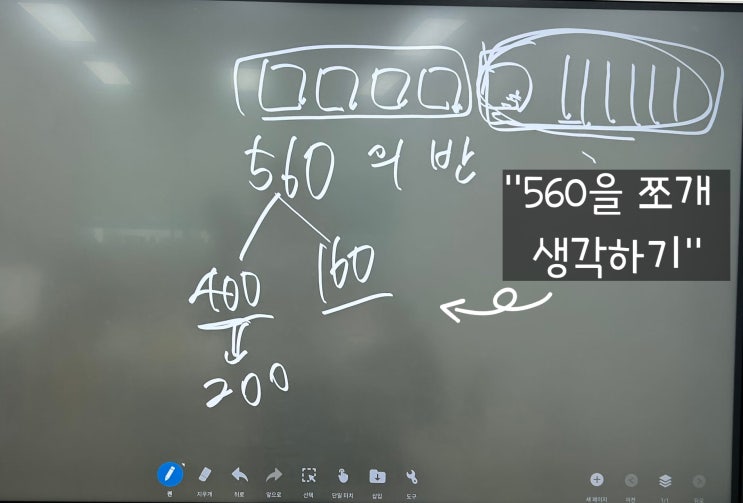 560의 반
"560을 쪼개
생각하기"
400
160
200
펜
지우개
뒤로
앞으로
선택
단일 터치
삽입
도구
새 페이지
이전
1/1